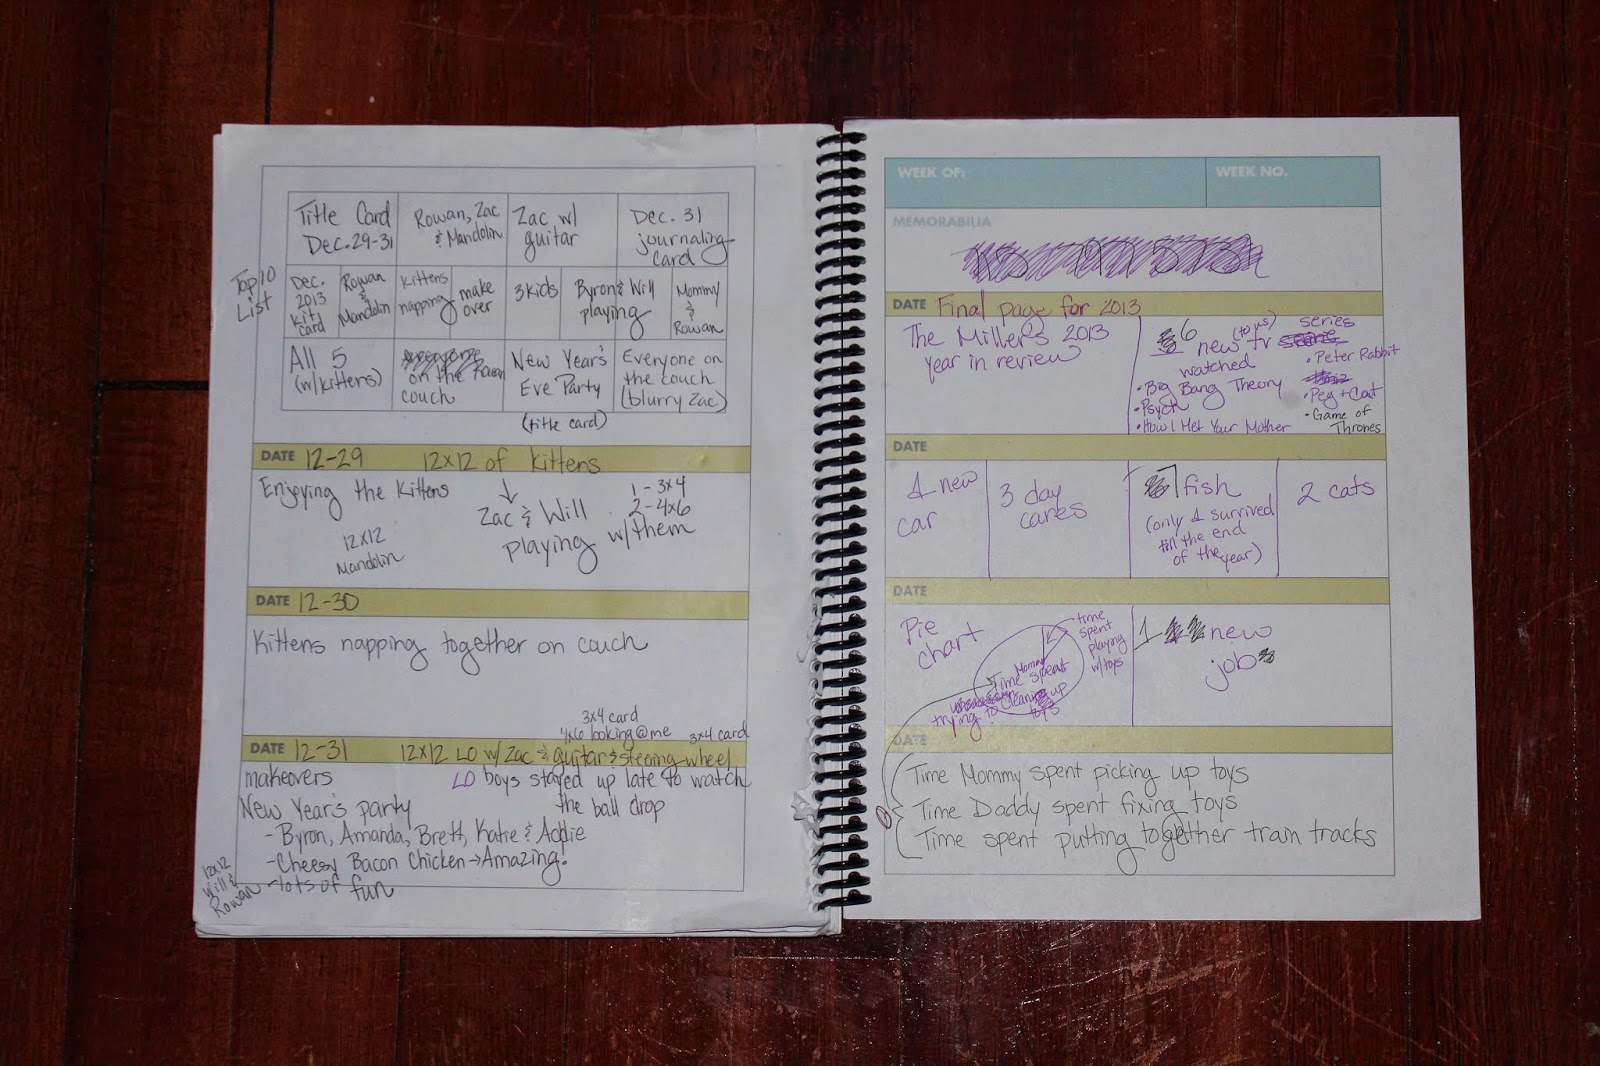 Title Card
Dec. 29-31
Rowan, Zac
& Mandolin
Zac w/
guitar
Dec. 31
journaling
card
Top 10
List
Dec.
2013
kit
card
Rowan
&
Mandolin
Kittens
napping
make
over
3 kids
Byron & Will
playing
Mommy
&
Rowan
All 5
(w/kittens)
Rowan
on the
couch
New Year's
Eve Party
(title card)
Everyone on
the couch
(blurry Zac)
DATE 12-29 12x12 of kittens
Enjoying the Kittens
12x12
Mandolin
Zac & Will
playing
1 - 3x4
2 - 4x6
w/them
DATE 12-30
Kittens napping together on couch
3x4 card
4x6 looking @ me 3x4 card
DATE 12-31 12x12 LO w/ Zac & guitar & steering wheel
makeovers
LO boys stayed up late to watch
the ball drop
New Year's party
- Byron, Amanda, Brett, Katie & Addie
- Cheesy Bacon Chicken → Amazing!
- lots of fun
12x12
Will &
Rowan
WEEK OF:
WEEK NO.
MEMORABILIA
DATE Final page for 2013
The Miller's 2013
year in review
6 new (to us) tv series
watched
• Big Bang Theory
• Psych
• How I Met Your Mother
• Peter Rabbit
• Peg + Cat
• Game of
Thrones
DATE
1 new
car
3 day
cares
7 fish
(only 1 survived
till the end
of the year)
2 cats
DATE
Pie
chart
time
spent
playing
w/toys
Mommy
Time spent
trying to clean up
toys
1 new
job
DATE
Time Mommy spent picking up toys
Time Daddy spent fixing toys
Time spent putting together train tracks